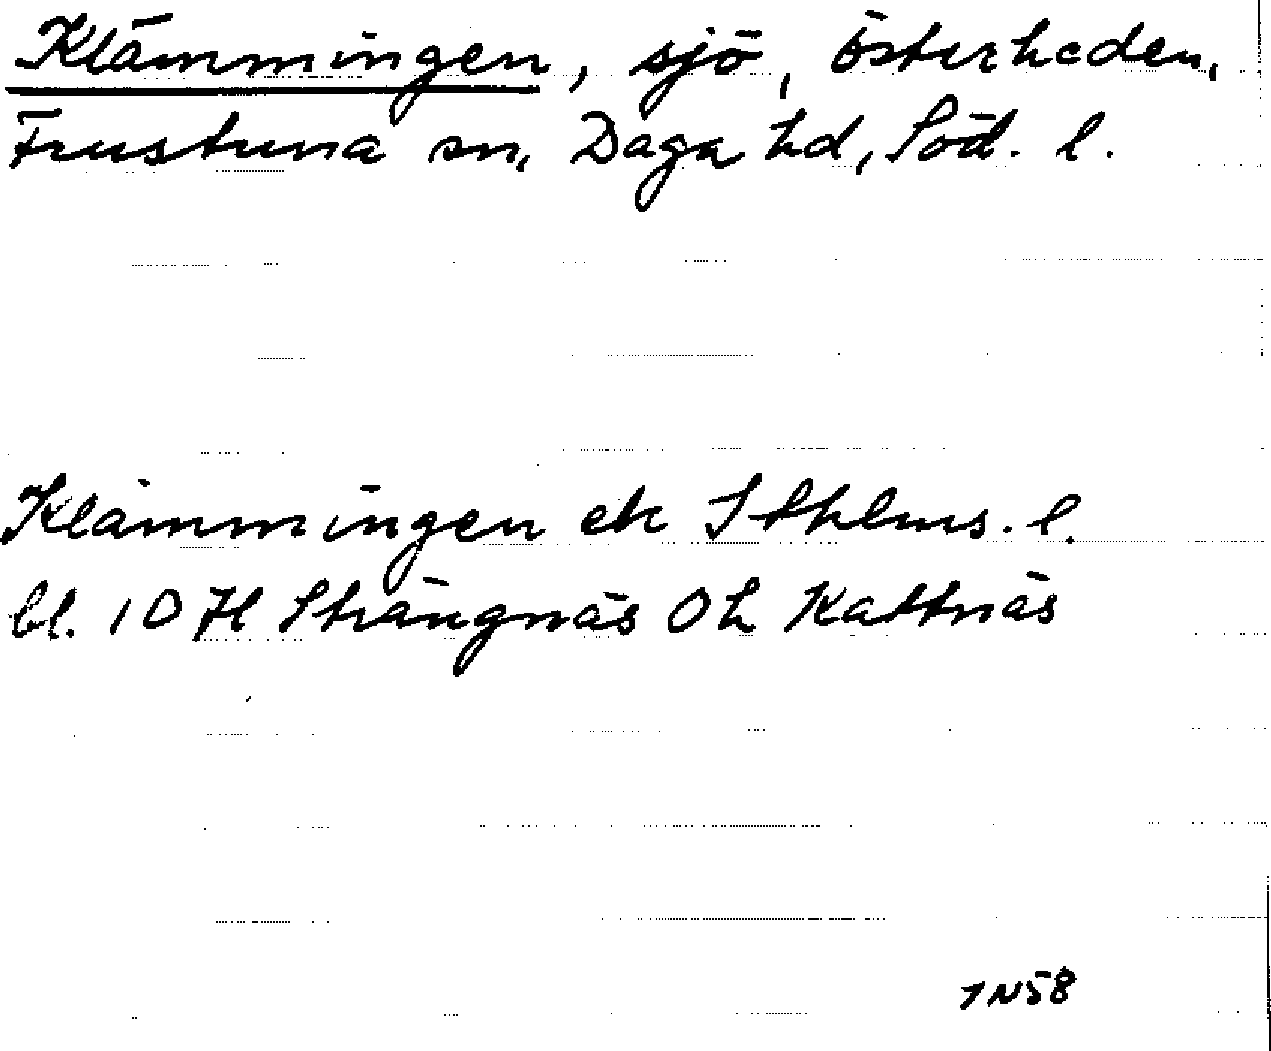 Klämmingen, sjö, österheden,
Frustuna sn, Daga hd, Söd. l.
Klämmingen ek Sthlms. l.
bl. 10 H Strängnäs 0 h Kattnäs
1N58